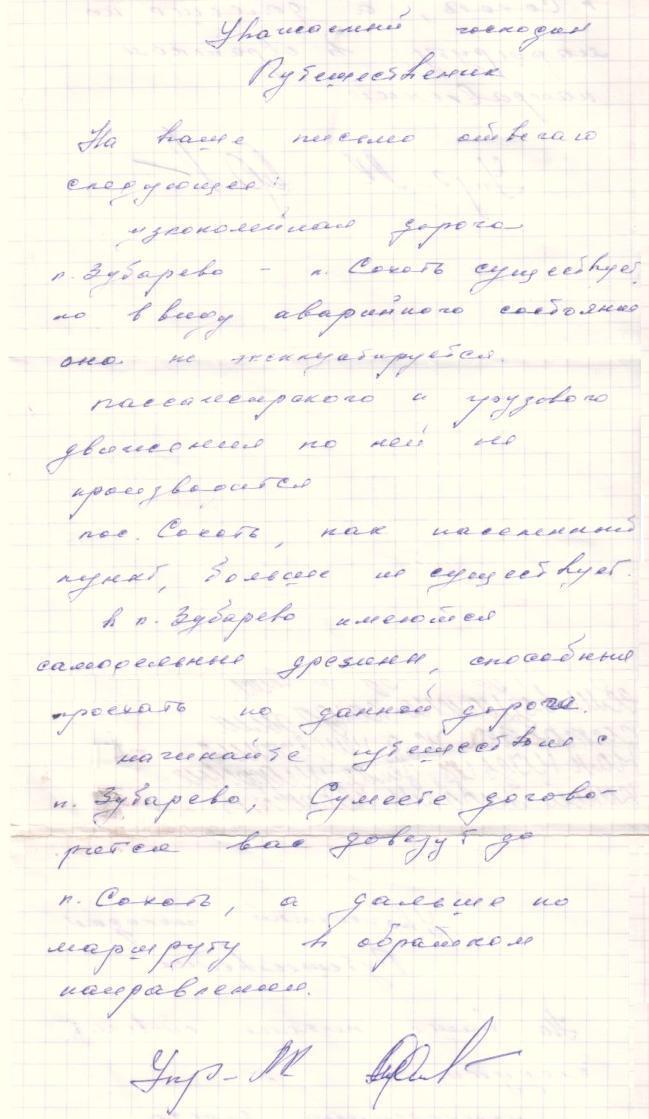 Уважаемый господин
Путешественник
На ваше письмо отвечаю
следующее:
узкоколейная дорога
п. Зубарево - п. Сохоть существует,
но ввиду аварийного состояния
она не эксплуатируется.
пассажирского и грузового
движения по ней не
производится
пос. Сохоть, как населенный
пункт, больше не существует.
в п. Зубарево имеются
самодельные дрезины, способные
проехать по данной дороге.
начинайте путешествие с
п. Зубарево, Сумеете догово-
рится вас довезут до
п. Сохоть, а дальше по
маршруту в обратном
направлении.